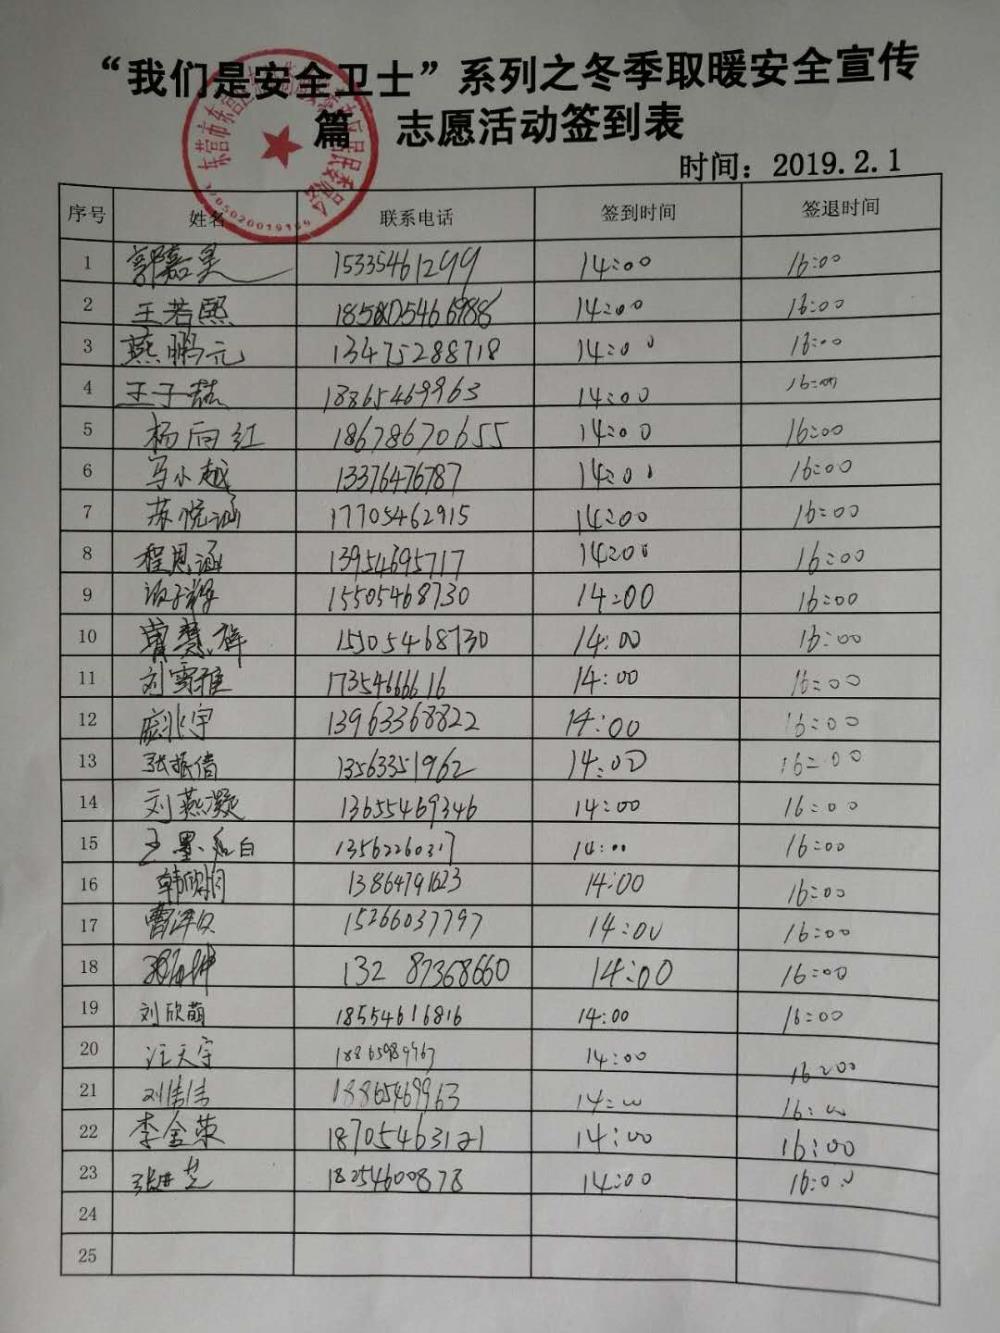 “我们是安全卫士”系列之冬季取暖安全宣传
篇 志愿活动签到表
时间：2019.2.1
序号 姓名 联系电话 签到时间 签退时间
1 郭嘉昊 15335461299 14:00 16:00
2 王若熙 14:00 16:00
3 燕鹏元 13475288718 14:00 16:00
4 王子喆 18865469963 14:00 16:00
5 杨向红 18678670655 14:00 16:00
6 马小越 13376476787 14:00 16:00
7 苏悦涵 17705462915 14:00 16:00
8 程思涵 13954695717 14:00 16:00
9 15505468730 14:00 16:00
10 15505468730 14:00 16:00
11 刘雪雅 14:00 16:00
12 13963368822 14:00 16:00
13 张振倩 13563351962 14:00 16:00
14 刘燕凝 13655469346 14:00 16:00
15 王墨白 13562260317 14:00 16:00
16 13864791623 14:00 16:00
17 15266037797 14:00 16:00
18 13287368660 14:00 16:00
19 刘欣萌 18554616816 14:00 16:00
20 汪天宇 14:00 16:00
21 刘洁洁 18865469963 14:00 16:00
22 李金荣 18705463121 14:00 16:00
23 18254600878 14:00 16:00
24
25